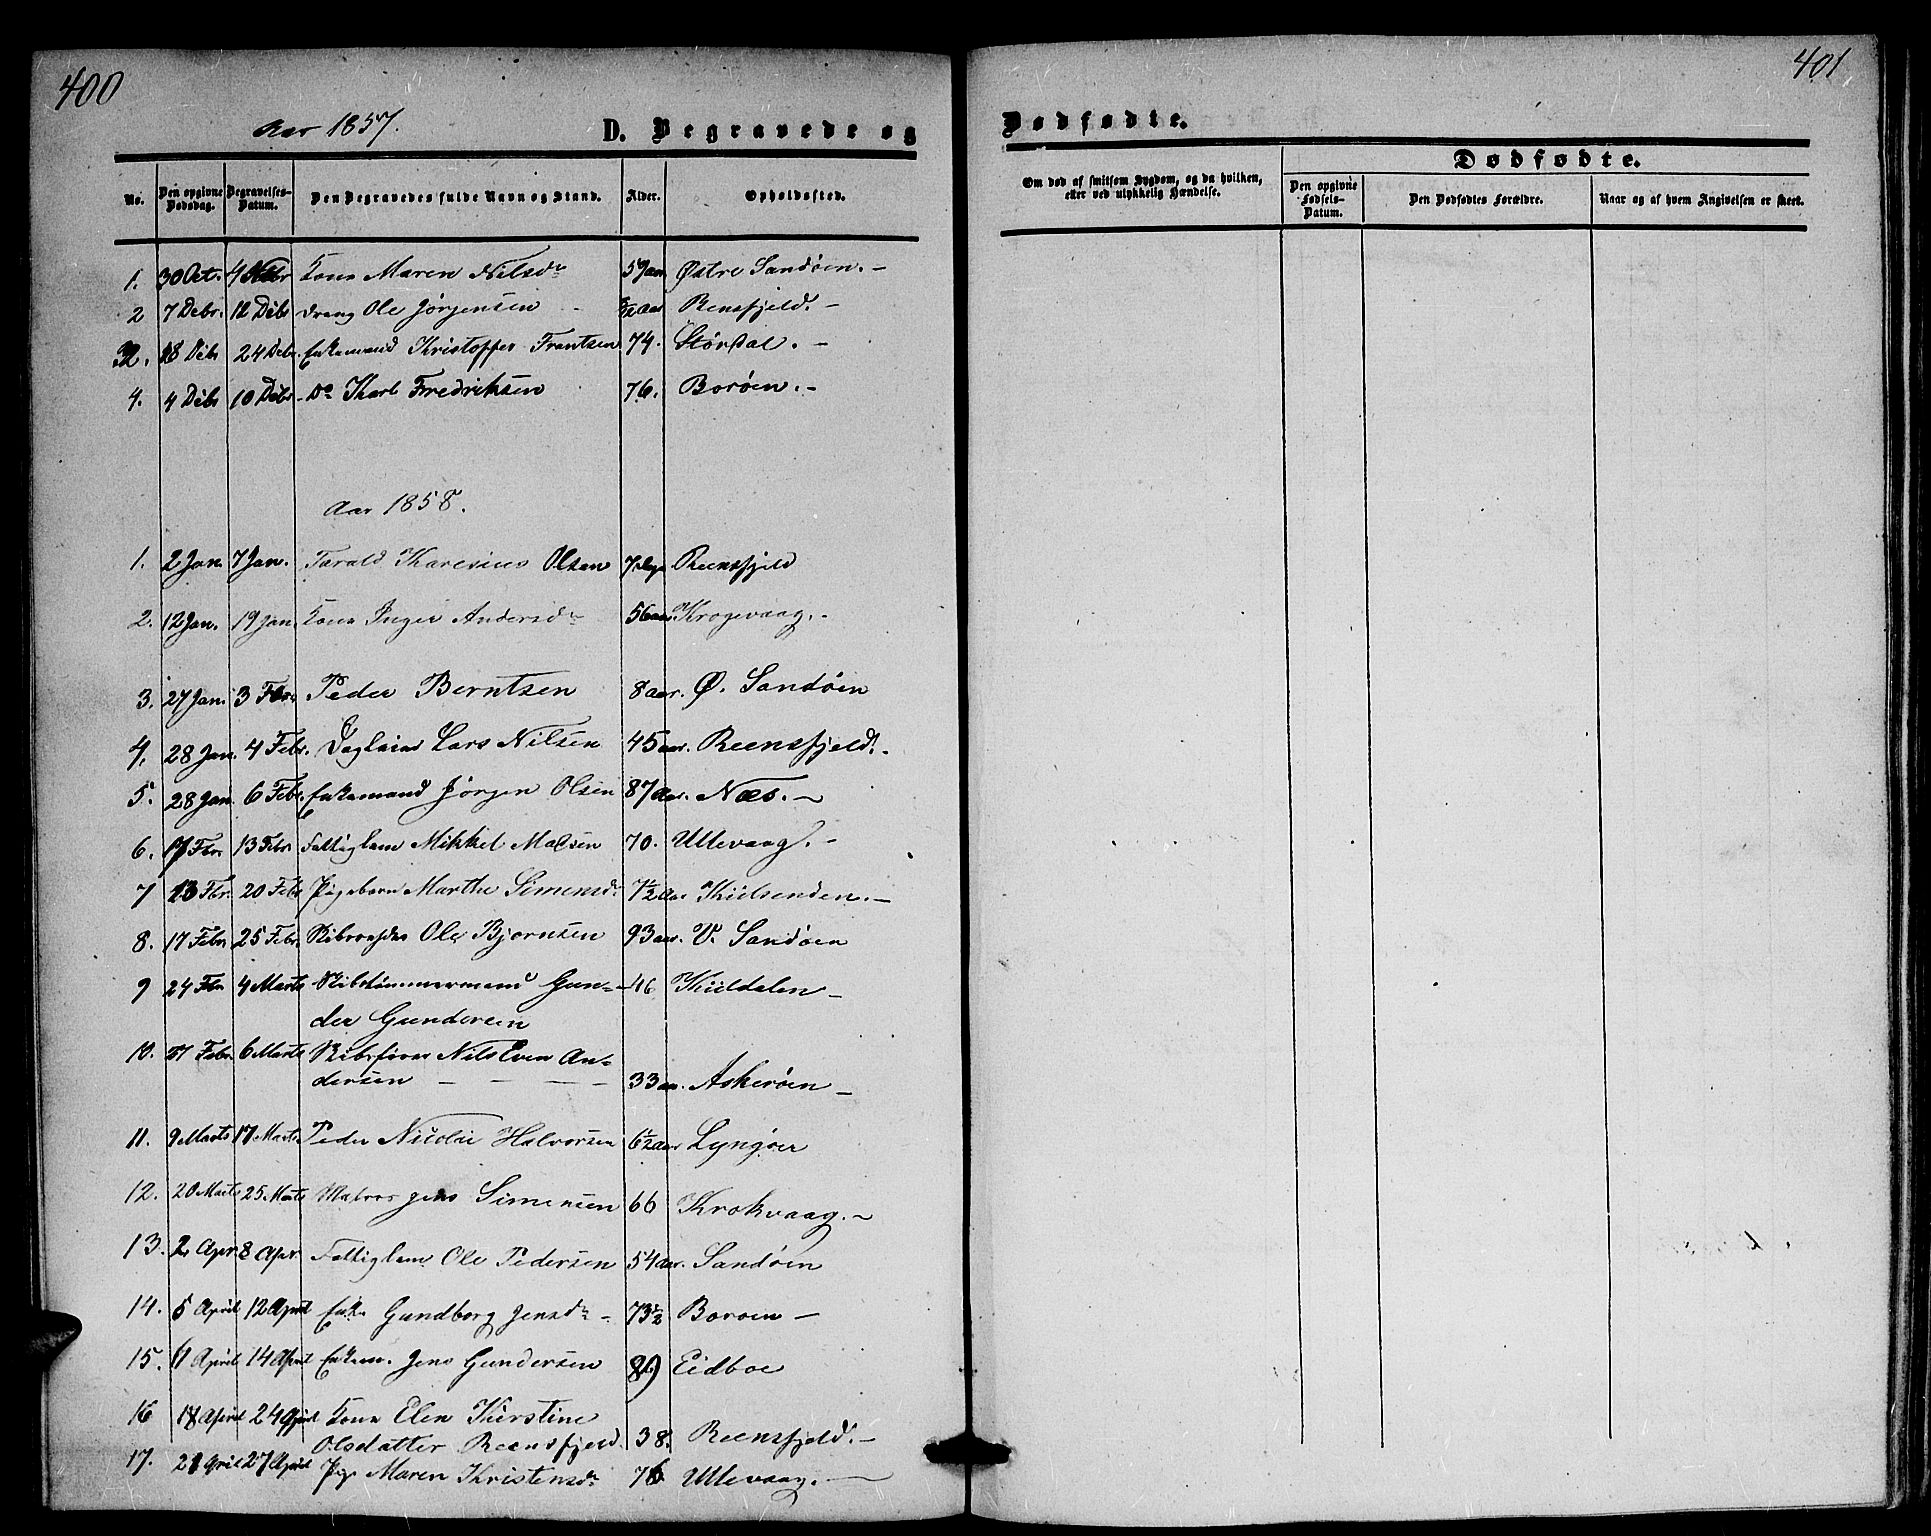 400
Aar 1857.
D. Begravede og
No.
Den opgivne Dødsdag.
Begravelses-Datum.
Den Begravedes fulde Navn og Stand.
Alder.
Opholdssted.
1. 30 Oct. 4 Kona Maren Nilsdr 57 aar Østre Sandøen.-
2 7 Debr. 12 Debr Dreng Ole Jørgensen - aar Rensfjeld.-
3. 18 Debr 24 Debr. Enkemand Kristoffer Frantsen 74. Størdal.-
4. 4 Debr 10 Debr. Do Karl Fredriksen 76. Borøen.-
Aar 1858.
1. 2 Jan. 7 Jan. Tarald Karesius Olsen 7 Reensfjeld
2. 12 Jan. 19 Jan. Kona Inger Andersdr 56 aar. Krogevaag.-
3. 27 Jan. 3 Fbr. Peder Berntsen 8 aar. Ø. Sandøen
4. 28 Jan. 4 Febr. Daglein Lars Nilsen 45 aar. Reensfjeld.-
5. 28 Jan. 6 Febr. Enkemand Jørgen Olsen 87 Aar. Næs.-
6. Fbr. 13 Febr Fattiglem Mikkel 70. Ullevaag.-
7 13 Fbr. 20 Febr Pigebarn Marthe Simensdr. 7½ Aar Kiilsenden.-
8. 17 Febr 25 Febr. Ole Bjørnsen 93 aar. V. Sandøen
9 24 Fbr 4 Marts Skibstømmermand Gun- 46 Kiildalen-
der Gundersen
10. Febr. 6 Marts Skibsfører Nils Even An-
dersen - - - - 33 aar. Askerøen-
11. 9 Marts 17 Marts. Peder Nicolai Halvorsen 6½ Aar Lyngøer
12. 20 Marts 25 Marts Matros Jens Simensen 66 Krokvaag.-
13. 2 Apr. 8 Apr. Fattiglem Ole Pedersen 54 aar. Sandøen
14. 5 April 12 April Enke Gundborg Jensdr - 73½ Borøen-
15. 11 April 14 April Enkem. Jens Gundersen Eidboe
16 18 April 24 April Kona Elen Kirstine
Olsdatter Reensfjeld. 38. Reensfjeld.-
17. 21 April 27 April Pige Maren Kristensdr 76 Ullevaag.-
401
Dødfødte.
Om død af smitsom Sygdom, og da hvilken, eller ved ulykkelig Hændelse.
Dødfødte.
Den opgivne Fødsels-Datum.
Den Dødfødtes Forældre.
Naar og af hvem Angivelsen er skeet.